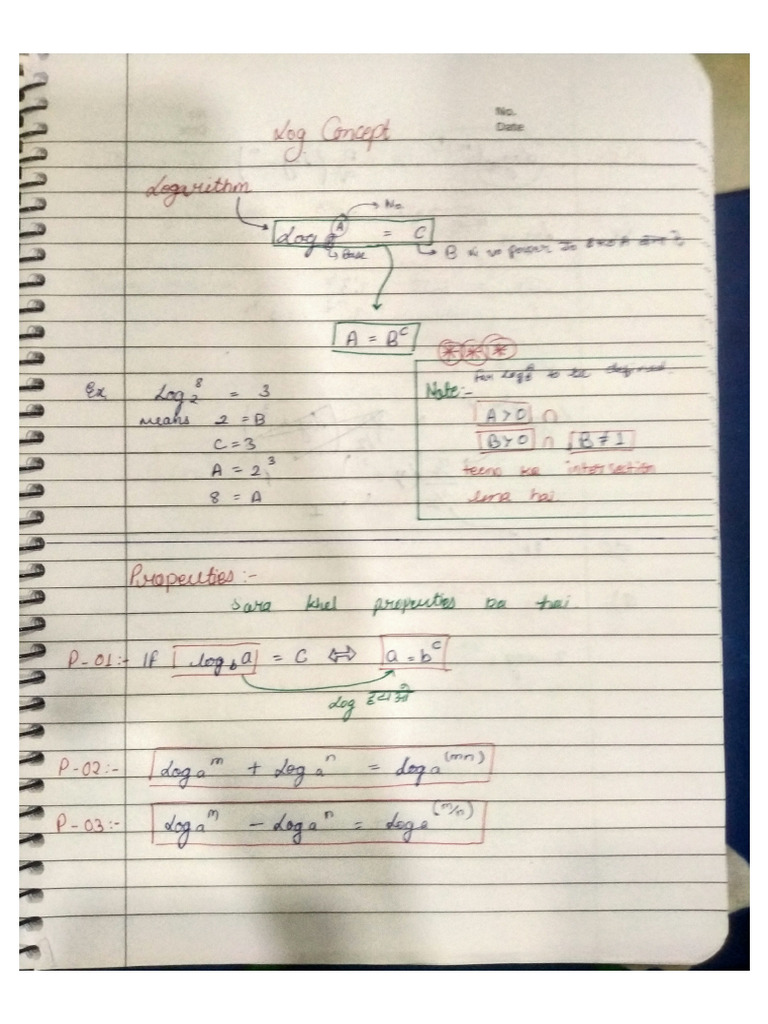 No.
Date
Log Concept
Logarithm
→ No.
Log_B^A = C
→ Base
→ B
A = B^C
***
For Log_B^A to be defined.
Note:-
A>0 ∩
B>0 ∩ B≠1
teeno ka intersection
lena hai
Ex Log_2^8 = 3
means 2 = B
C = 3
A = 2^3
8 = A
Properties:-
Sara khel properties ka hai.
P-01:- If log_b a = C ⇔ a = b^c
Log हटाओ
P-02:- Log_a^m + Log_a^n = Log_a^(mn)
P-03:- Log_a^m - Log_a^n = Log_a^(m/n)